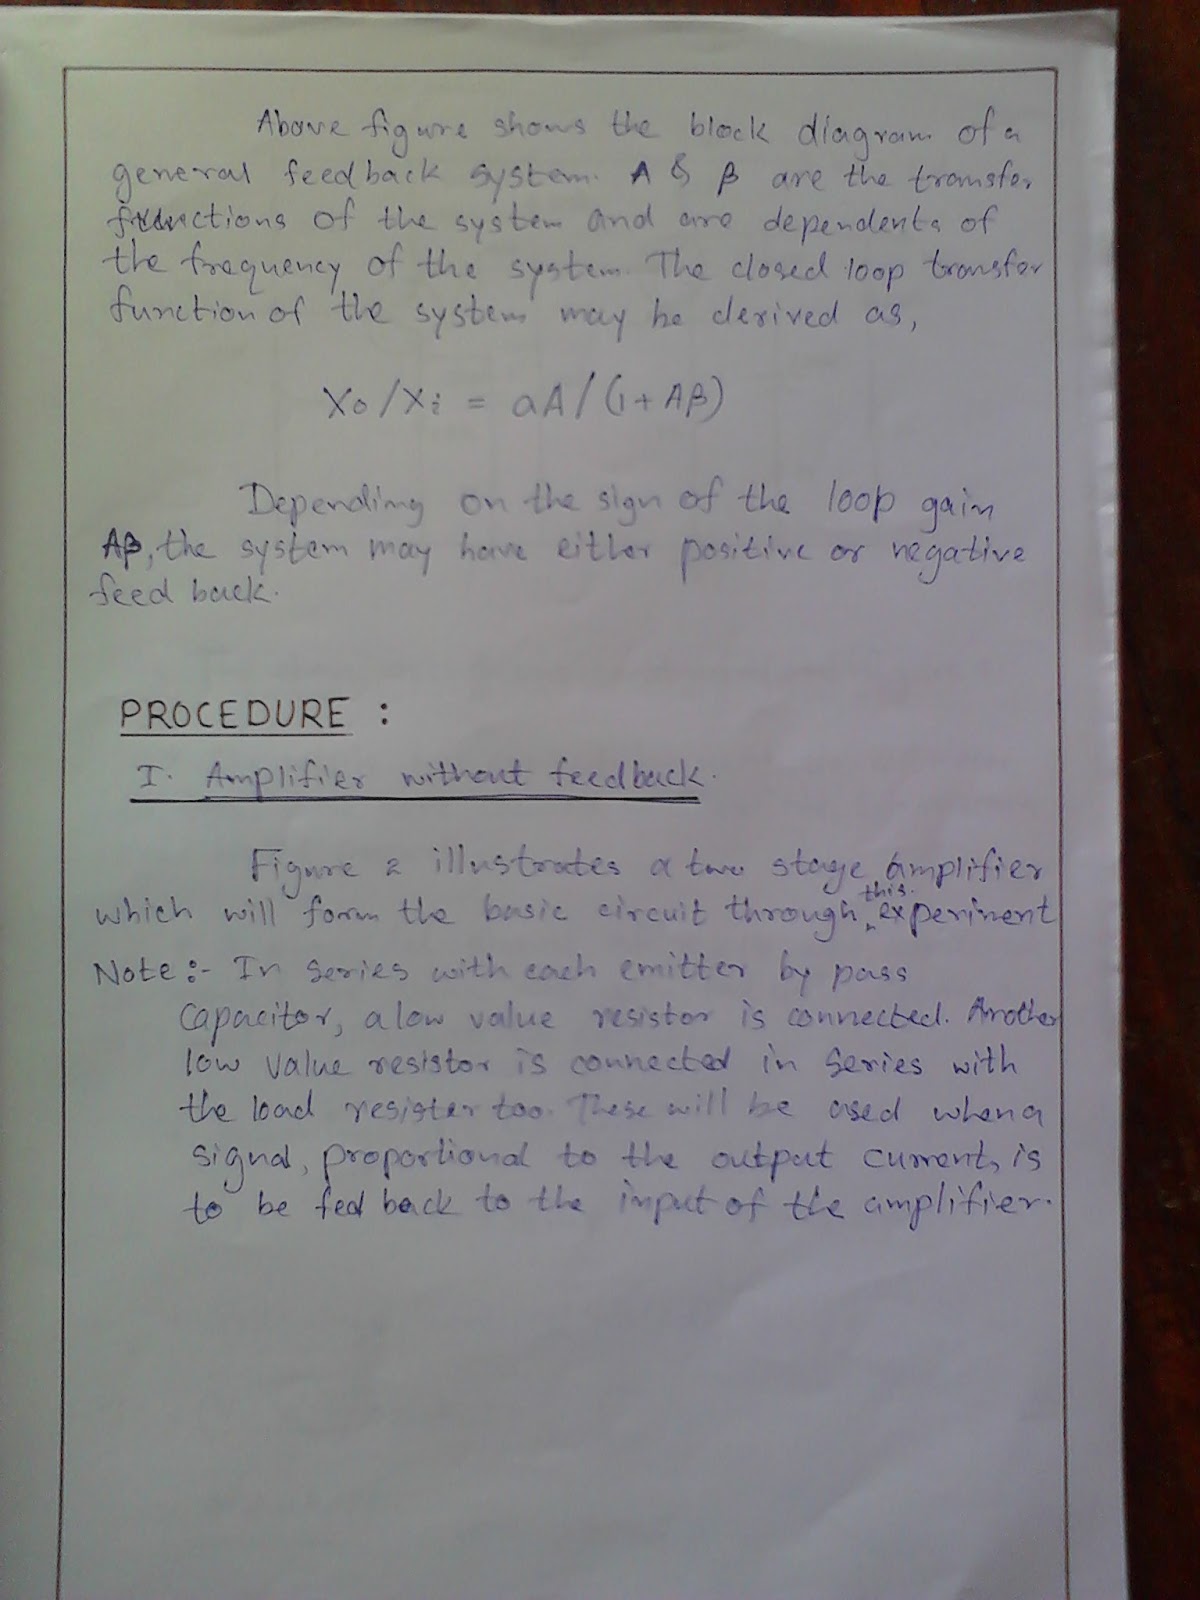 Above figure shows the block diagram of a
general feedback system. A & β are the transfer
functions of the system and are dependents of
the frequency of the system. The closed loop transfer
function of the system may be derived as,
Xo/Xi = aA/(1+Aβ)
Depending on the sign of the loop gain
Aβ, the system may have either positive or negative
feed back.
PROCEDURE :
I. Amplifier without feedback.
Figure 2 illustrates a two stage amplifier
which will form the basic circuit through this experiment
Note :- In series with each emitter by pass
capacitor, a low value resistor is connected. Another
low value resistor is connected in series with
the load resister too. These will be used when a
signal, proportional to the output current, is
to be fed back to the input of the amplifier.